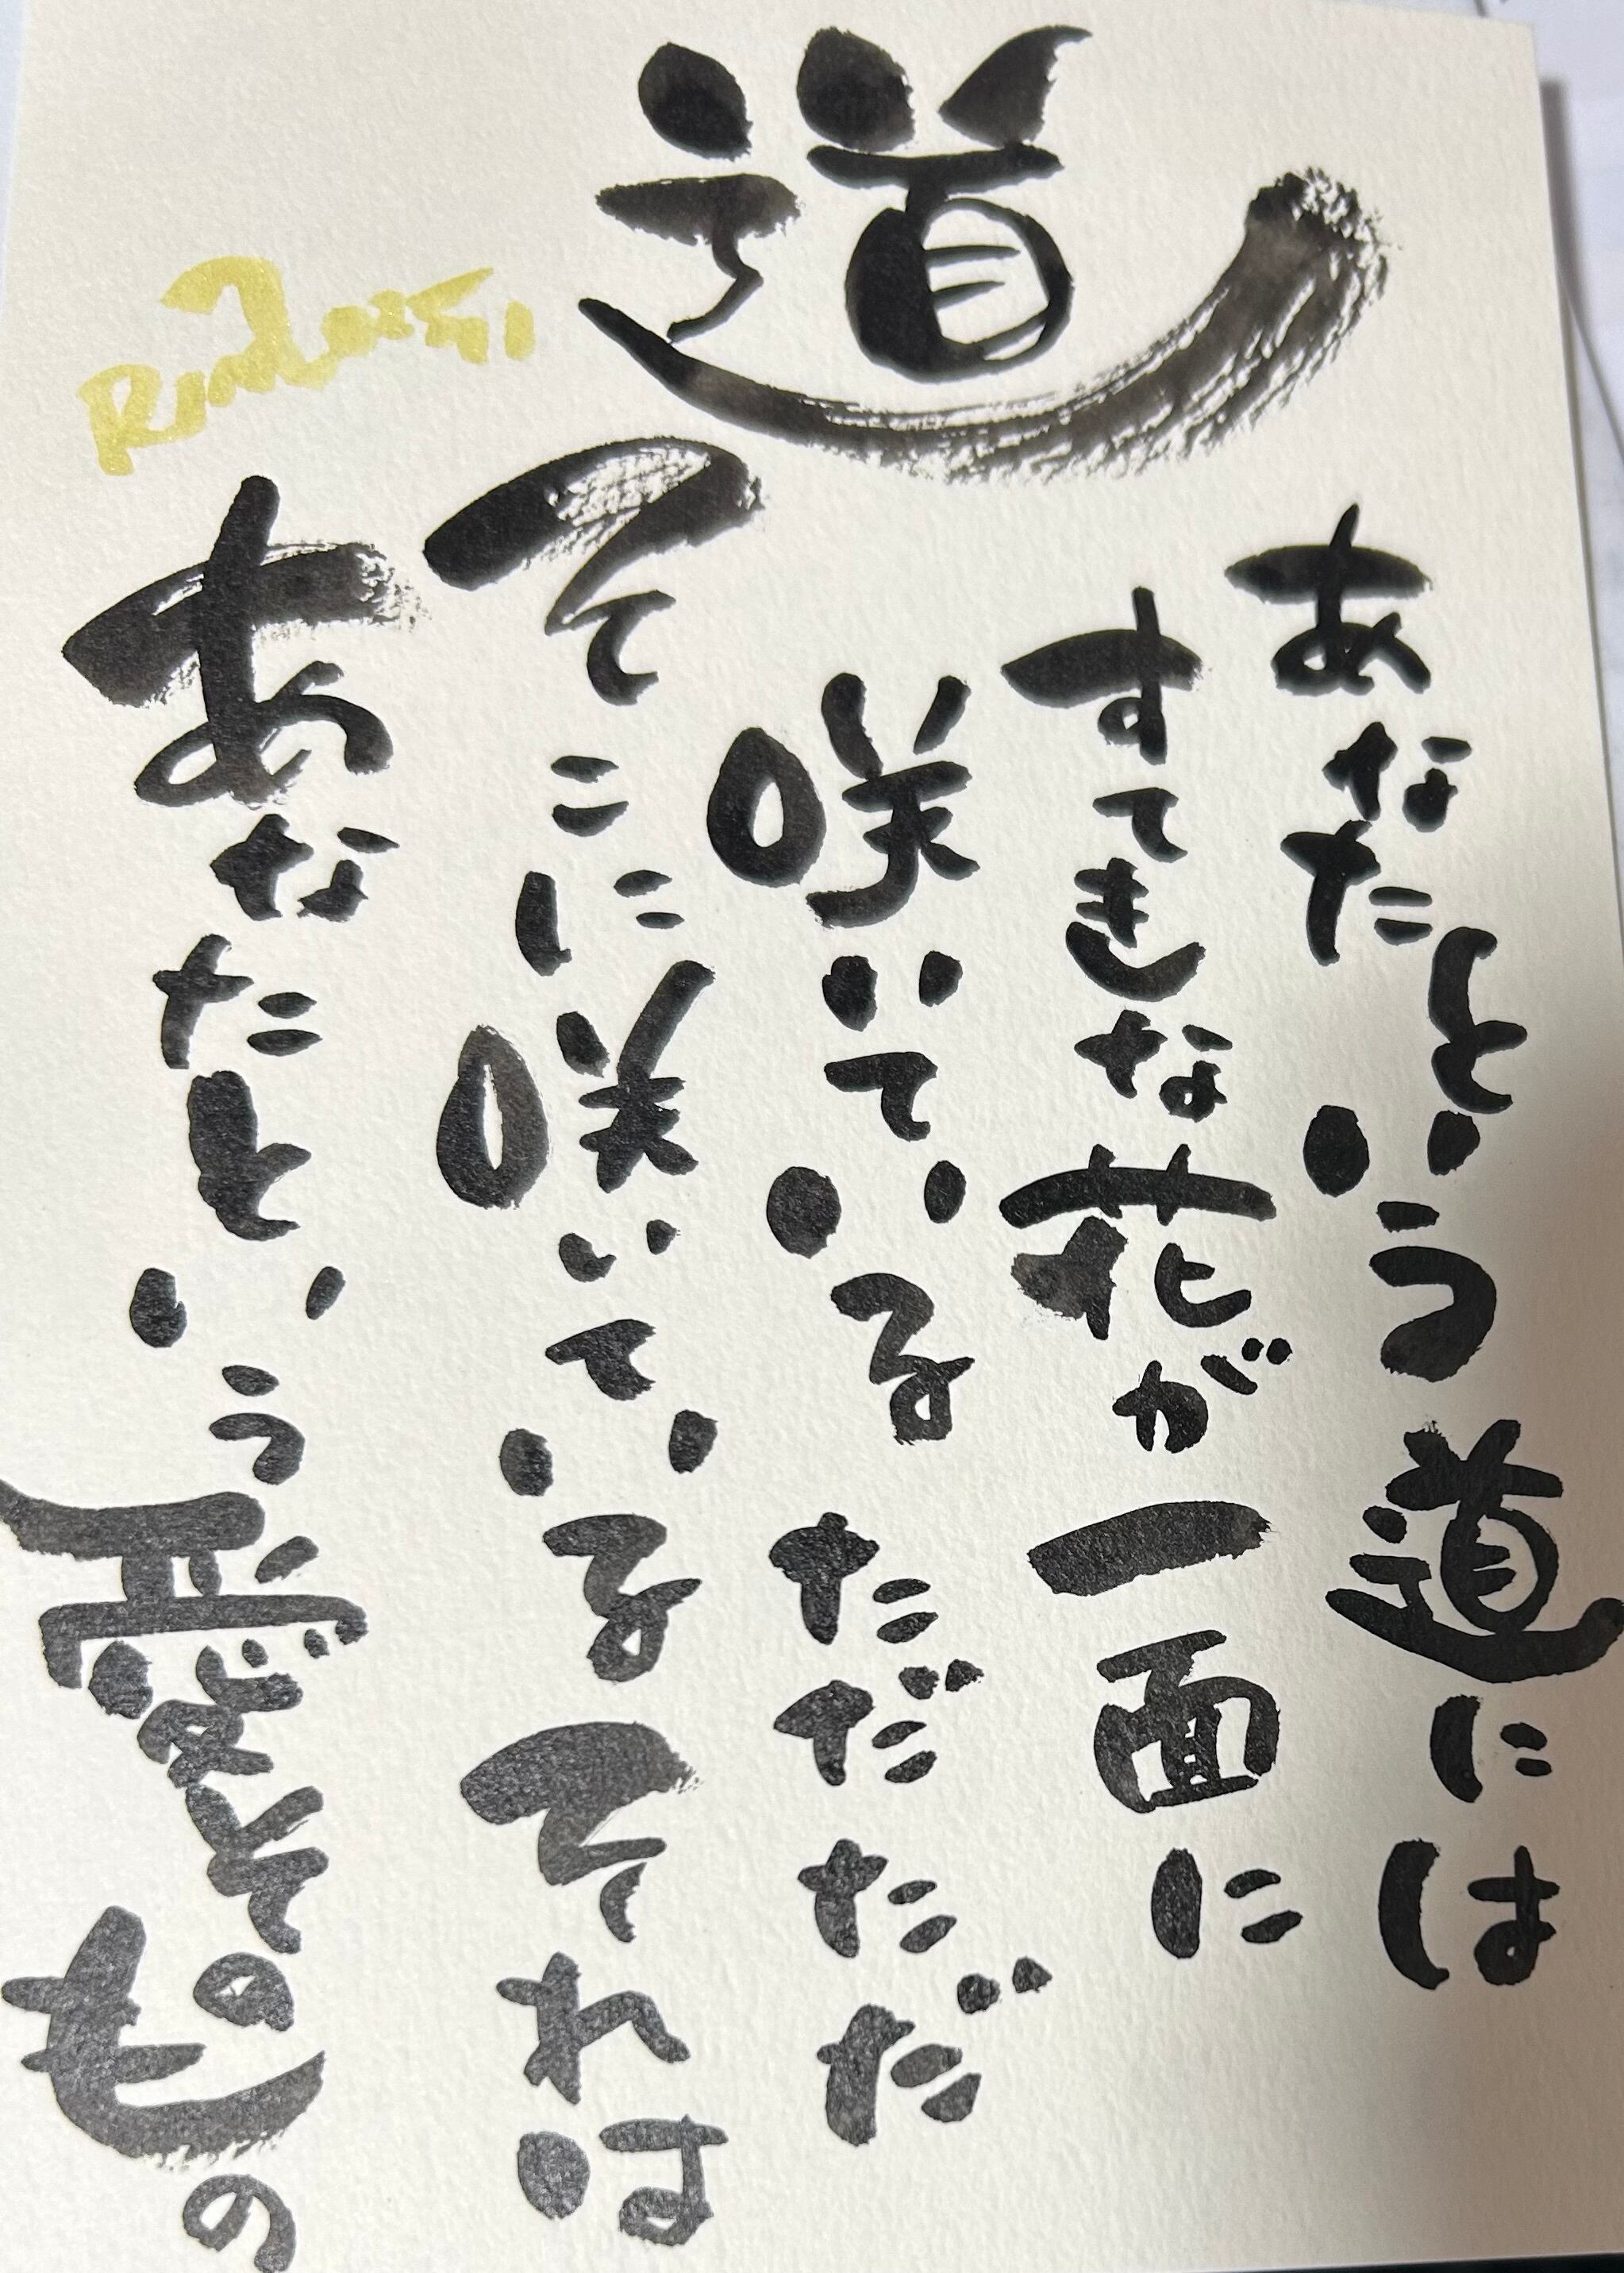 道
あなたという道には
すてきな花が一面に
咲いている ただ ただ
そこに咲いている それは
あなたという 形そのもの